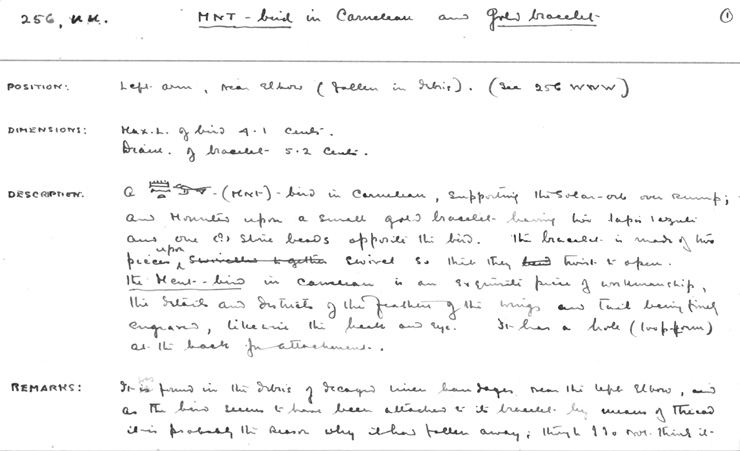 256, NN. MNT-bird in Carnelean and gold bracelet. ①
POSITION: Left arm, near Elbow (fallen in debris). (See 256 WWW)
DIMENSIONS: Max. L. of bird 4.1 cents.
Diam. of bracelet 5.2 cents.
DESCRIPTION. A -(MNT)-bird in Carnelean, supporting the Solar-orb over rump;
and Mounted upon a small gold bracelet having two lapis lazuli
and one stone beads opposite the bird. The bracelet is made of two
pieces upon swivelled together swivel so that they twist to open.
The Ment-bird in Carnelean is an exquisite piece of workmanship,
the details and districts of the feathers of the wings and tail being finely
engraved, likewise the back and eye. It has a hole (loop-form)
at the back for attachment.
REMARKS: It is found in the debris of decayed linen bandages near the left Elbow, and
as the bird seems to have been attached to its bracelet by means of thread
it is probably the reason why it had fallen away; though I do not think it